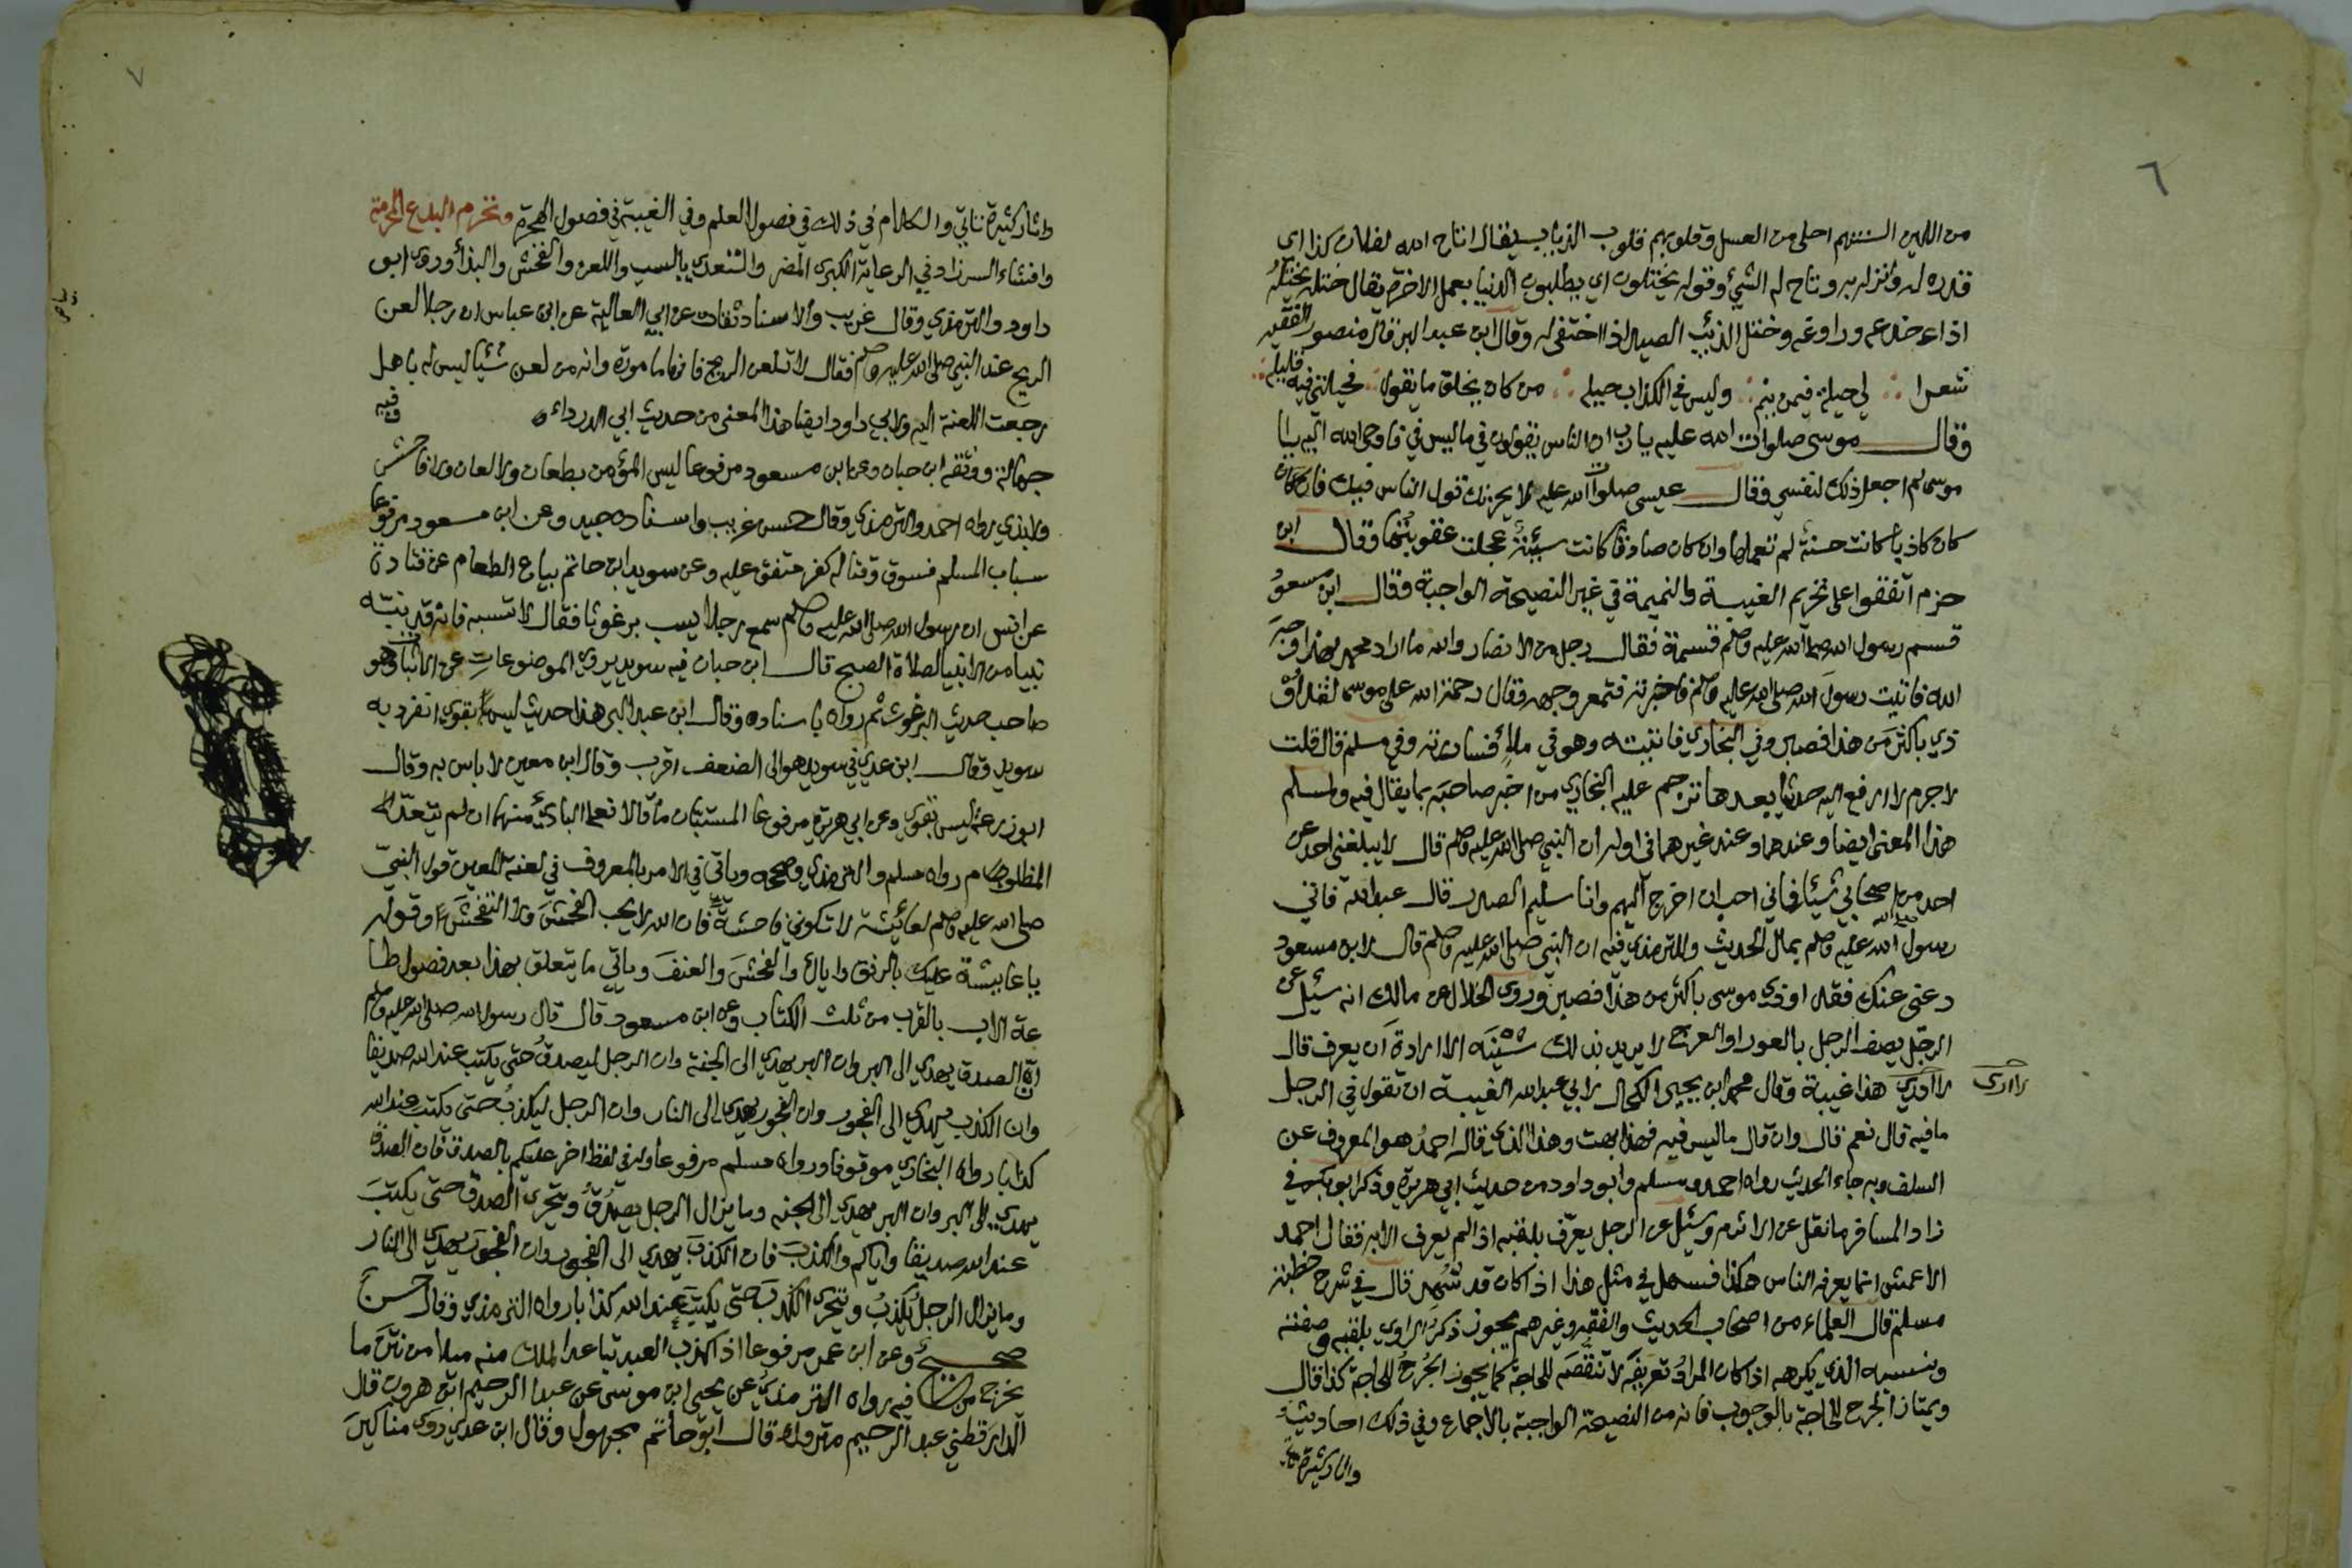 ٦
من اللين السنتهم احلى من العسل وقلوبهم قلوب الذياب يقال اتاح الله لفلان كذا اى
قدره له وانزله به وتاح له الشيء وقوله يختلون اي يطلبون الدنيا بعمل الاخرة يقال ختله يختله
اذا خدعه وراوغه وختل الذئب الصيد اذا اختفى له وقال ابن عبد البر قال منصور الفقيه
شعرا لي حيلة فيمن ينم وليس في الكذاب حيله من كان يخلق ما يقول فحيلتي فيه قليله
وقال موسى صلوات الله عليه يا رب ان الناس يقولون في ما ليس في فاوحى الله اليه يا
موسى لم اجعل ذلك لنفسي وقال عيسى صلوات الله عليه لا يحزنك قول الناس فيك فان كان
كان كاذبا كانت حسنة لم تعملها وان كان صادقا كانت سيئة عجلت عقوبتها وقال ابن
حزم اتفقوا على تحريم الغيبة والنميمة في غير النصيحة الواجبة وقال ابن مسعود
قسم رسول الله صلى الله عليه وسلم قسمة فقال رجل من الانصار والله ما اراد محمد بهذا وجه
الله فاتيت رسول الله صلى الله عليه وسلم فاخبرته فتمعر وجهه وقال رحمة الله على موسى لقد او
ذي باكثر من هذا فصبر وفي البخاري فاتيته وهو في ملاء فساررته وفي مسلم قال قلت
لا جرم لا ارفع اليه حديثا بعدها ترجم عليه البخاري من اخبر صاحبه بما يقال فيه ولمسلم
هذا المعنى ايضا وعندهما وعند غيرهما في اوله ان النبي صلى الله عليه وسلم قال لا يبلغني احد عن
احد من اصحابي شيئا فاني احب ان اخرج اليهم وانا سليم الصدر قال عبد الله فاتي
رسول الله صلى الله عليه وسلم بمال الحديث وللترمذي فيه ان النبي صلى الله عليه وسلم قال لابن مسعود
دعني عنك فقد اوذي موسى باكثر من هذا فصبر وروى الخلال عن مالك انه سئل عن
الرجل يصف الرجل بالعور او العرج لا يريد بذلك شينه الا ارادة ان يعرف قال
لا ادري هذا غيبة وقال محمد ابن يحيى الكحال لابي عبد الله الغيبة ان تقول في الرجل
لا ادرى
ما فيه قال نعم قال وان قال ما ليس فيه فهذا بهت وهذا الذي قاله احمد هو المعروف عن
السلف وبه جاء الحديث رواه احمد ومسلم وابو داود من حديث ابي هريرة وذكر ابو بكر في
زاد المسافر ما نقل عن الاثرم وسئل عن الرجل يعرف بلقبه اذا لم يعرف الا به فقال احمد
الاعمش انما يعرفه الناس هكذا فسهل في مثل هذا اذا كان قد شهر قال في شرح خطبة
مسلم قال العلماء من اصحاب الحديث والفقه وغيرهم يجوز ذكر الراوي بلقبه وصفته
ونسبه الذي يكرهه اذا كان المراد تعريفه لا تنقصه للحاجة كما يجوز الجرح للحاجة كذا قال
ويمتاز الجرح للحاجة بالوجوب فانه من النصيحة الواجبة بالاجماع وفي ذلك احاديث
واثار كثيرة
٧
واثار كثيرة تاتي والكلام في ذلك في فصول العلم وفي الغيبة في فصول الهجرة وتحرم البدع المحرمة
وافشاء السر زاد في الرعاية الكبرى المضر والتعدي بالسب واللعن والفحش والبذأ وروى ابو
داود والترمذي وقال غريب والاسناد ثقات عن ابي العالية عن ابن عباس ان رجلا لعن
الريح عند النبي صلى الله عليه وسلم فقال لا تلعن الريح فانها مامورة وانه من لعن شيئا ليس له باهل
رجعت اللعنة اليه ولابي داود ايضا هذا المعنى من حديث ابي الدرداء وفيه
جهالة ووثقه ابن حبان وعن ابن مسعود مرفوعا ليس المؤمن بطعان ولا لعان ولا فاحش
ولا بذي رواه احمد والترمذي وقال حسن غريب واسناده جيد وعن ابن مسعود مرفوعا
سباب المسلم فسوق وقتاله كفر متفق عليه وعن سويد ابن حاتم بياع الطعام عن قتادة
عن انس ان رسول الله صلى الله عليه وسلم سمع رجلا يسب برغوثا فقال لا تسبه فانه قد نبه
نبيا من الانبيا لصلاة الصبح قال ابن حبان فيه سويد يروي الموضوعات عن الاثبات وهو
صاحب حديث البرغوث ثم رواه باسناده وقال ابن عبد البر هذا حديث ليس بقوي انفرد به
سويد وقال ابن عدي في سويد هو الى الضعف اقرب وقال ابن معين لا باس به وقال
ابو زرعة ليس بقوي وعن ابي هريرة مرفوعا المستبان ما قالا فعلى البادئ منهما ان لم يتعد
المظلوم رواه مسلم والترمذي وصححه وياتي في الامر بالمعروف في لعنة المعين قول النبي
صلى الله عليه وسلم لعائشة لا تكوني فاحشة فان الله لا يحب الفحش ولا التفحش وقوله
يا عايشة عليك بالرفق واياك والفحش والعنف وياتي ما يتعلق بهذا بعد فصول طا
عة الاب بالقرب من ثلث الكتاب وعن ابن مسعود قال قال رسول الله صلى الله عليه وسلم
ان الصدق يهدي الى البر وان البر يهدي الى الجنة وان الرجل ليصدق حتى يكتب عند الله صديقا
وان الكذب يهدي الى الفجور وان الفجور يهدي الى النار وان الرجل ليكذب حتى يكتب عند الله
كذابا رواه البخاري موقوفا ورواه مسلم مرفوعا وله في لفظ اخر عليكم بالصدق فان الصدق
يهدي الى البر وان البر يهدي الى الجنة وما يزال الرجل يصدق ويتحرى الصدق حتى يكتب
عند الله صديقا واياكم والكذب فان الكذب يهدي الى الفجور وان الفجور يهدي الى النار
وما يزال الرجل يكذب ويتحرى الكذب حتى يكتب عند الله كذابا رواه الترمذي وقال حسن
صحيح وعن ابن عمر مرفوعا اذا كذب العبد تباعد الملك منه ميلا من نتن ما
يخرج من فيه رواه الترمذي عن يحيى ابن موسى عن عبد الرحيم ابن هرون قال
الدارقطني عبد الرحيم متروك قال ابو حاتم مجهول وقال ابن عدي روى مناكير